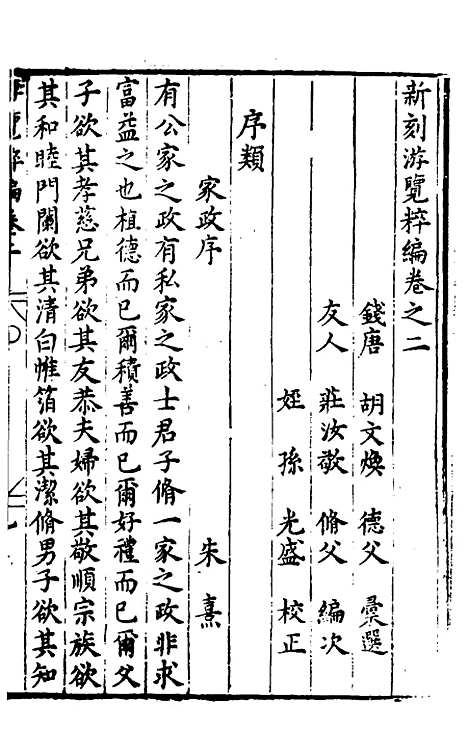 新刻游覽粹編卷之二
錢唐 胡文煥 德父 彙選
友人 莊汝敬 脩父 編次
姪孫 光盛 校正
序類
家政序 朱熹
有公家之政有私家之政士君子脩一家之政非求
富益之也植德而已爾積善而已爾好禮而已爾父
子欲其孝慈兄弟欲其友恭夫婦欲其敬順宗族欲
其和睦門闌欲其清白帷箔欲其潔脩男子欲其知